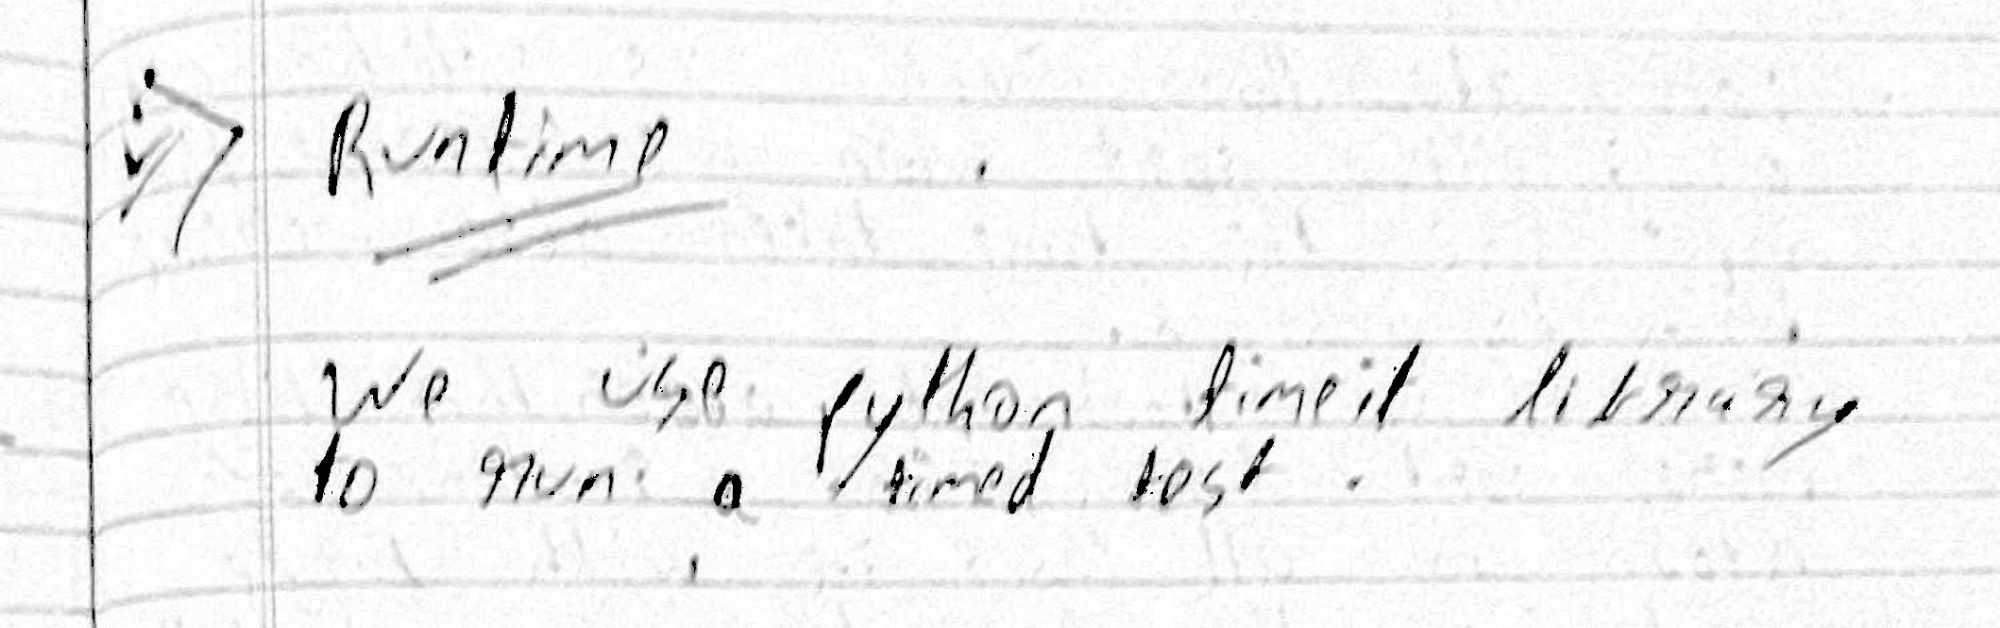 ii> Runtime
We use python timeit library
to run a timed test.